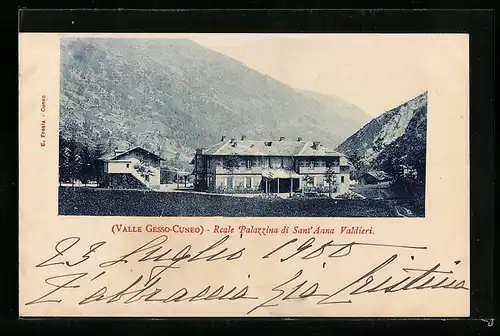 E. Fresia - Cuneo
(VALLE GESSO-CUNEO) - Reale Palazzina di Sant'Anna Valdieri.
23 Luglio 1900
T'abbraccia zia Cristina